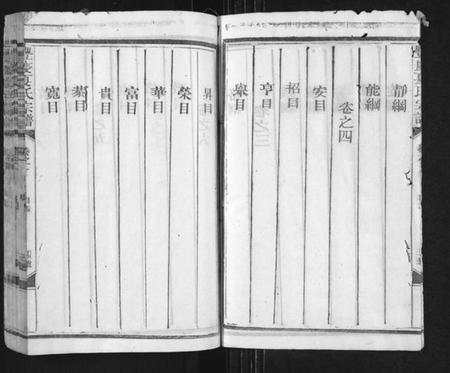 靜綱
能綱
卷之四
安目
招目
亨目
舉目
昇目
榮目
華目
富目
貴目
菊目
寬目